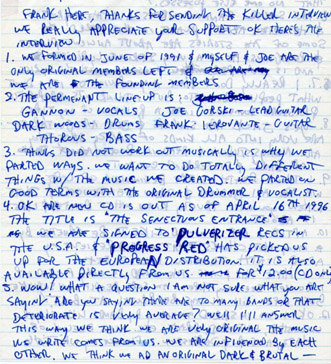 FRANK HERE, THANKS FOR SENDING THE KILLER INTERVIEW
WE REALLY APPRECIATE YOUR SUPPORT. OK HERE'S THE
INTERVIEW,
1. WE FORMED IN JUNE OF 1991 & MYSELF & JOE ARE THE
ONLY ORIGINAL MEMBERS LEFT &
WE ARE THE FOUNDING MEMBERS
2. THE PERMENANT LINE UP IS:
GANNON - VOCALS JOE GORSKI - LEAD GUITAR
DARK WOODS - DRUMS FRANK - GUITAR
THOROUS - BASS
3. THINGS DID NOT WORK OUT MUSICALLY IS WHY WE
PARTED WAYS. WE WANT TO DO TOTALLY DIFFERENT
THINGS W/ THE MUSIC WE CREATED. WE PARTED ON
GOOD TERMS WITH THE ORIGINAL DRUMMER & VOCALIST.
4. OK ARE NEW CD IS OUT AS OF APRIL 16TH 1996
THE TITLE IS "THE SENECTUOUS ENTRANCE"
WE ARE SIGNED TO PULVERIZER RECS IN
THE U.S.A. & "PROGRESS RED" HAS PICKED US
UP FOR THE EUROPEAN DISTRIBUTION. IT IS ALSO
AVAILABLE DIRECTLY FROM US FOR $12.00 (CD ONLY)
5. WOW! WHAT A QUESTION I AM NOT SURE WHAT YOU ARE
SAYIN' ARE YOU SAYING THERE ARE TO MANY BANDS OR THAT
DETERIORATE IS VERY AVERAGE? WELL I'LL ANSWER
THIS WAY WE THINK WE ARE VERY ORIGINAL THE MUSIC
WE WRITE COMES FROM US. WE ARE INFLUENCED BY EACH
OTHER. WE THINK WE AD AN ORIGINAL DARK & BRUTAL